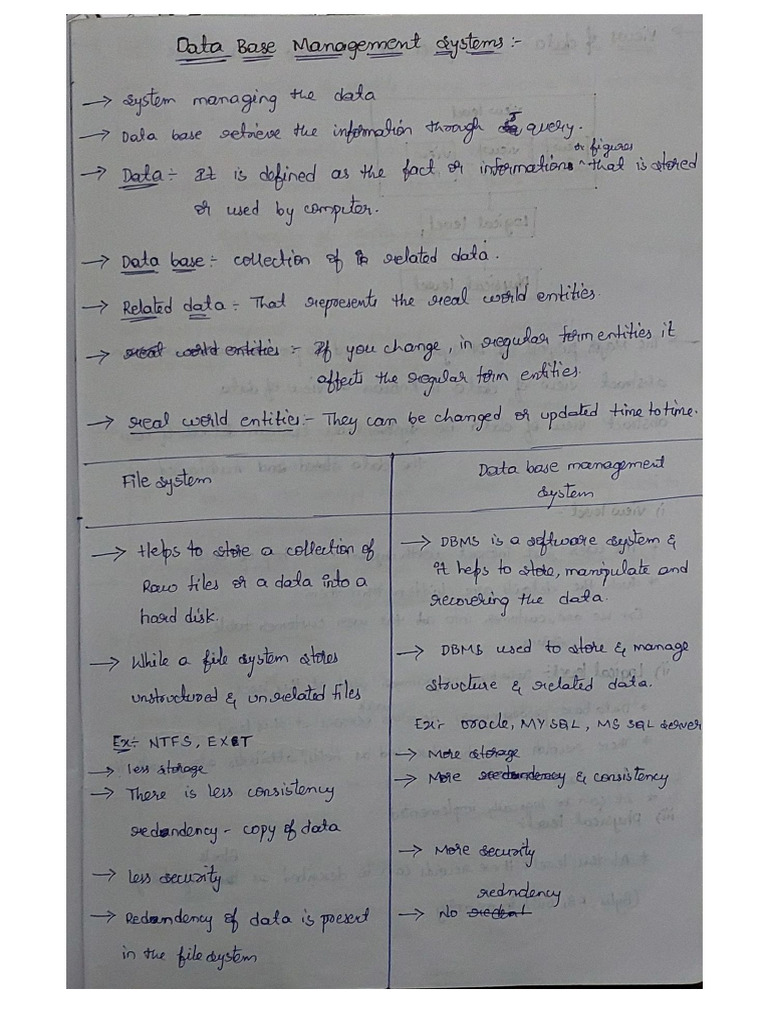 Data Base Management Systems:-
→ System managing the data
→ Data base retrieve the information through a query.
→ Data:- It is defined as the fact or informations ^ or figures that is stored
or used by computer.
→ Data base:- collection of related data.
→ Related data:- That represents the real world entities.
→ real world entities:- If you change, in regular form entities it
affects the regular form entities.
→ real world entities:- They can be changed or updated time to time.
File System
→ Helps to store a collection of
Raw files or a data into a
hard disk.
→ While a file system stores
unstructured & unrelated files
Ex:- NTFS, EXT
→ less storage
→ There is less consistency
redundency - copy of data
→ Less security
→ Redundency of data is present
in the file system
Data base management
System
→ DBMS is a software system &
it heps to store, manipulate and
recovering the data.
→ DBMS used to store & manage
structure & related data.
Ex:- Oracle, MYSQL, MS SQL server
→ More storage
→ More redundency & consistency
→ More security
redndency
→ No